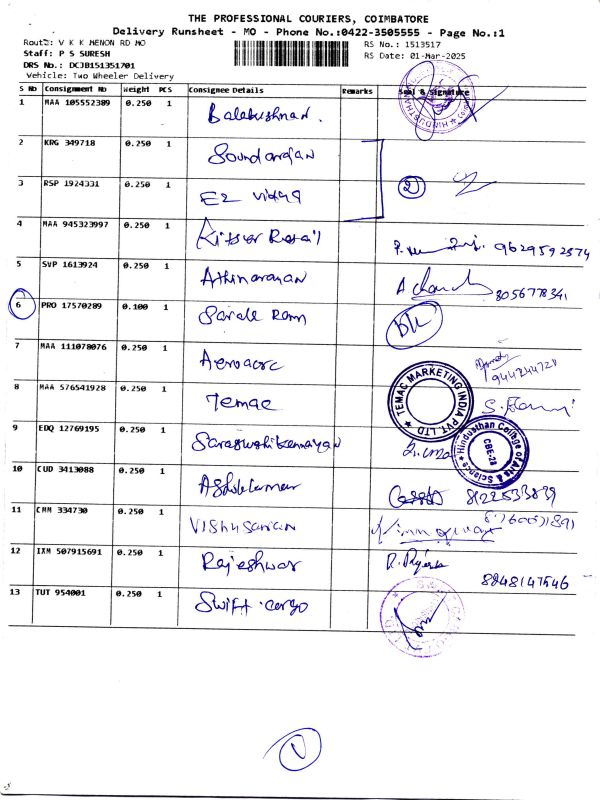 THE PROFESSIONAL COURIERS, COIMBATORE
Delivery Runsheet - MO - Phone No.:0422-3505555 - Page No.:1
Route: V K K MENON RD MO
RS No.: 1513517
Staff: P S SURESH
RS Date: 01-Mar-2025
DRS No.: DCJB151351701
Vehicle: Two Wheeler Delivery
S No Consignment No Weight PCS Consignee Details Remarks Seal & Signature
1 MAA 105552389 0.250 1 Balakrishnan.
2 KRG 349718 0.250 1 Soundarajan
3 RSP 1924331 0.250 1 EZ Vidya 2
4 MAA 945323997 0.250 1 9629592574
5 SVP 1613924 0.250 1 Athinarayan 8056778341
6 PRO 17570289 0.100 1 Sarale Ram
7 MAA 111078076 0.250 1 944244728
8 MAA 576541928 0.250 1 Temac
TEMAC MARKETING INDIA PVT. LTD
9 EDQ 12769195 0.250 1
Hindusthan College of Arts & Science
CBE-28
10 CUD 3413088 0.250 1 8122533839
11 CMM 334730 0.250 1
12 IXM 507915691 0.250 1 Rajeshwar 8848147646
13 TUT 954001 0.250 1 Swift cargo